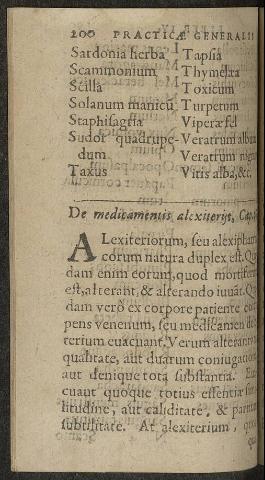 200 PRACTICÆ GENERALIS
Sardonia herba Tapsia
Scammonium Thymelæa
Scilla Toxicum
Solanum manicū Turpetum
Staphisagria Viperæ fel
Sudor quadrupe- Veratrum album
dum Veratrum nigrū
Taxus Vitis alba, &c.
De medicamentis alexiterijs, Cap.
ALexiteriorum, seu alexipharma
corum natura duplex est. Quæ
dam enim eorum, quod mortiferum
est, alterant, & alterando iuuāt. Quæ
dam vero ex corpore patiente
pens venenum, seu medicamen dele
terium euacuant. Verum alterant
qualitate, aut duarum coniugatione
aut denique tota substantia. Eua
cuant quoque totius essentiæ simi
litudine, aut caliditate, & partium
subtilitate. At alexiterium,